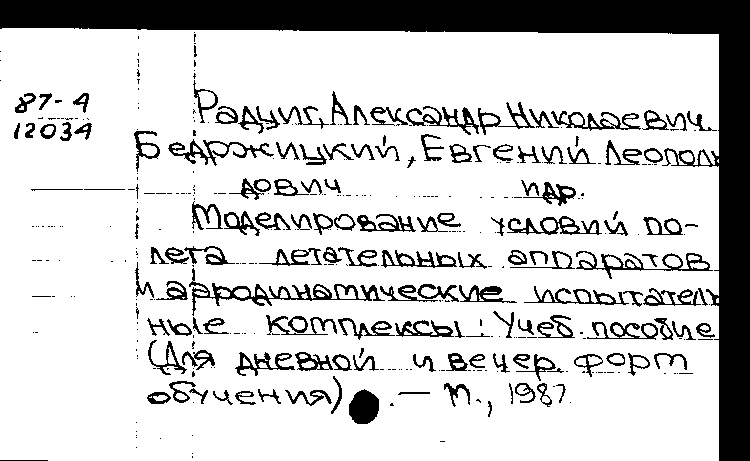 87-4
12034
Радциг, Александр Николаевич.
Бедржицкий, Евгений Леополь
дович и др.
Моделирование условий по-
лета летательных аппаратов
и аэродинамические испытатель
ные комплексы: Учеб. пособие
(Для дневной и вечер. форм
обучения) . — М., 1987